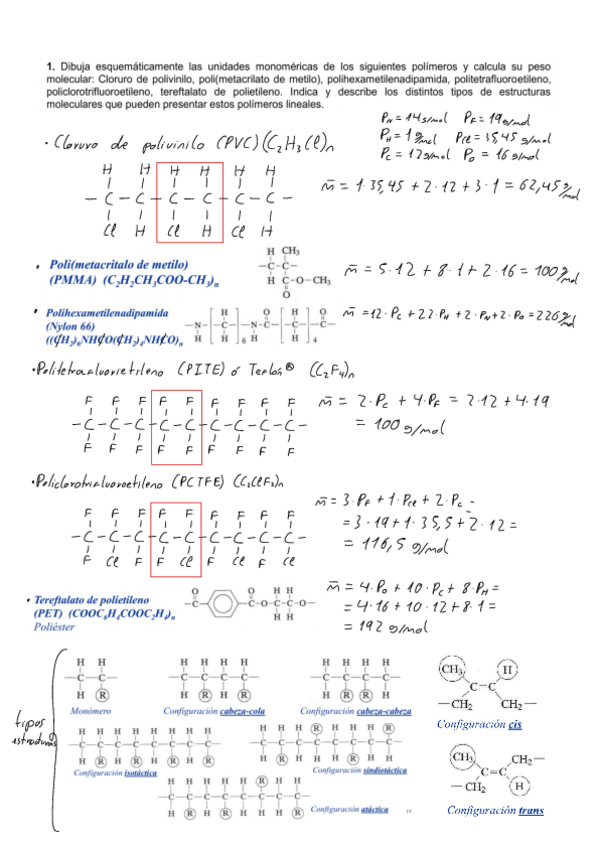 1. Dibuja esquemáticamente las unidades monoméricas de los siguientes polímeros y calcula su peso
molecular: Cloruro de polivinilo, poli(metacrilato de metilo), polihexametilenadipamida, politetrafluoroetileno,
policlorotrifluoroetileno, tereftalato de polietileno. Indica y describe los distintos tipos de estructuras
moleculares que pueden presentar estos polímeros lineales.
P_N = 14 g/mol P_F = 19 g/mol
P_H = 1 g/mol P_Cl = 35,45 g/mol
P_C = 12 g/mol P_O = 16 g/mol
· Cloruro de polivinilo (PVC) (C₂H₃Cl)n
H H H H H H
– C – C – C – C – C – C –
Cl H Cl H Cl H
m̄ = 1·35,45 + 2·12 + 3·1 = 62,45 g/mol
• Poli(metacritalo de metilo)
(PMMA) (C₂H₂CH₃COO-CH₃)n
H CH₃
–C–C–
H C–O–CH₃
O
m̄ = 5·12 + 8·1 + 2·16 = 100 g/mol
• Polihexametilenadipamida
(Nylon 66)
((CH₂)₆NHCO(CH₂)₄NHCO)n
H O H O
–N– –C– –N–C– –C– –C–
H H 6 H H 4
m̄ = 12·P_C + 22·P_H + 2·P_N + 2·P_O = 226 g/mol
• Politetrafluoretileno (PTTE) ó Teflón® (C₂F₄)n
F F F F F F F F
–C–C–C–C–C–C–C–C–
F F F F F F F F
m̄ = 2·P_C + 4·P_F = 2·12 + 4·19
= 100 g/mol
• Policlorotrifluoroetileno (PCTFE) (C₂ClF₃)n
F F F F F F F F
–C–C–C–C–C–C–C–C–
F Cl F Cl F Cl F Cl
m̄ = 3·P_F + 1·P_Cl + 2·P_C =
= 3·19 + 1·35,5 + 2·12 =
= 116,5 g/mol
• Tereftalato de polietileno
(PET) (COOC₆H₄COOC₂H₄)n
Poliéster
O O H H
–C– –C–O–C–C–O–
H H
m̄ = 4·P_O + 10·P_C + 8·P_H =
= 4·16 + 10·12 + 8·1 =
= 192 g/mol
tipos
estructuras
H H
–C–C–
H R
Monómero
H H H H
–C–C–C–C–
H R H R
Configuración cabeza-cola
H H H H
–C–C–C–C–
H R R H
Configuración cabeza-cabeza
CH₃ H
C–C
–CH₂ CH₂–
Configuración cis
H H H H H H H H
–C–C–C–C–C–C–C–C–
H R H R H R H R
Configuración isotáctica
H H H R H H H R
–C–C–C–C–C–C–C–C–
H R H H H R H H
Configuración sindiotáctica
H H H H H R H H
–C–C–C–C–C–C–C–C–
H R H R H H H R
Configuración atáctica
19
CH₃ CH₂–
C=C
–CH₂ H
Configuración trans